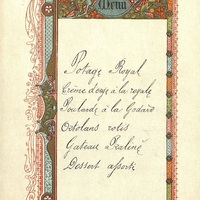 Menu
Potage Royal
Crème d'orge à la royale
Poularde à la Godard
Ortolans rotis
Gateau Praliné
Dessert assorti